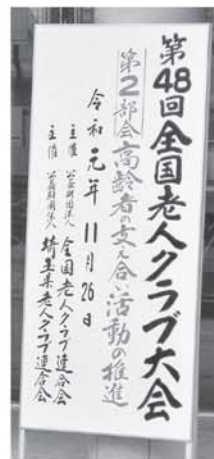 第48回全国老人クラブ大会
第2部会 高齢者の支え合い活動の推進
令和元年11月26日
主催 公益財団法人 全国老人クラブ連合会
主催 公益財団法人 埼玉県老人クラブ連合会